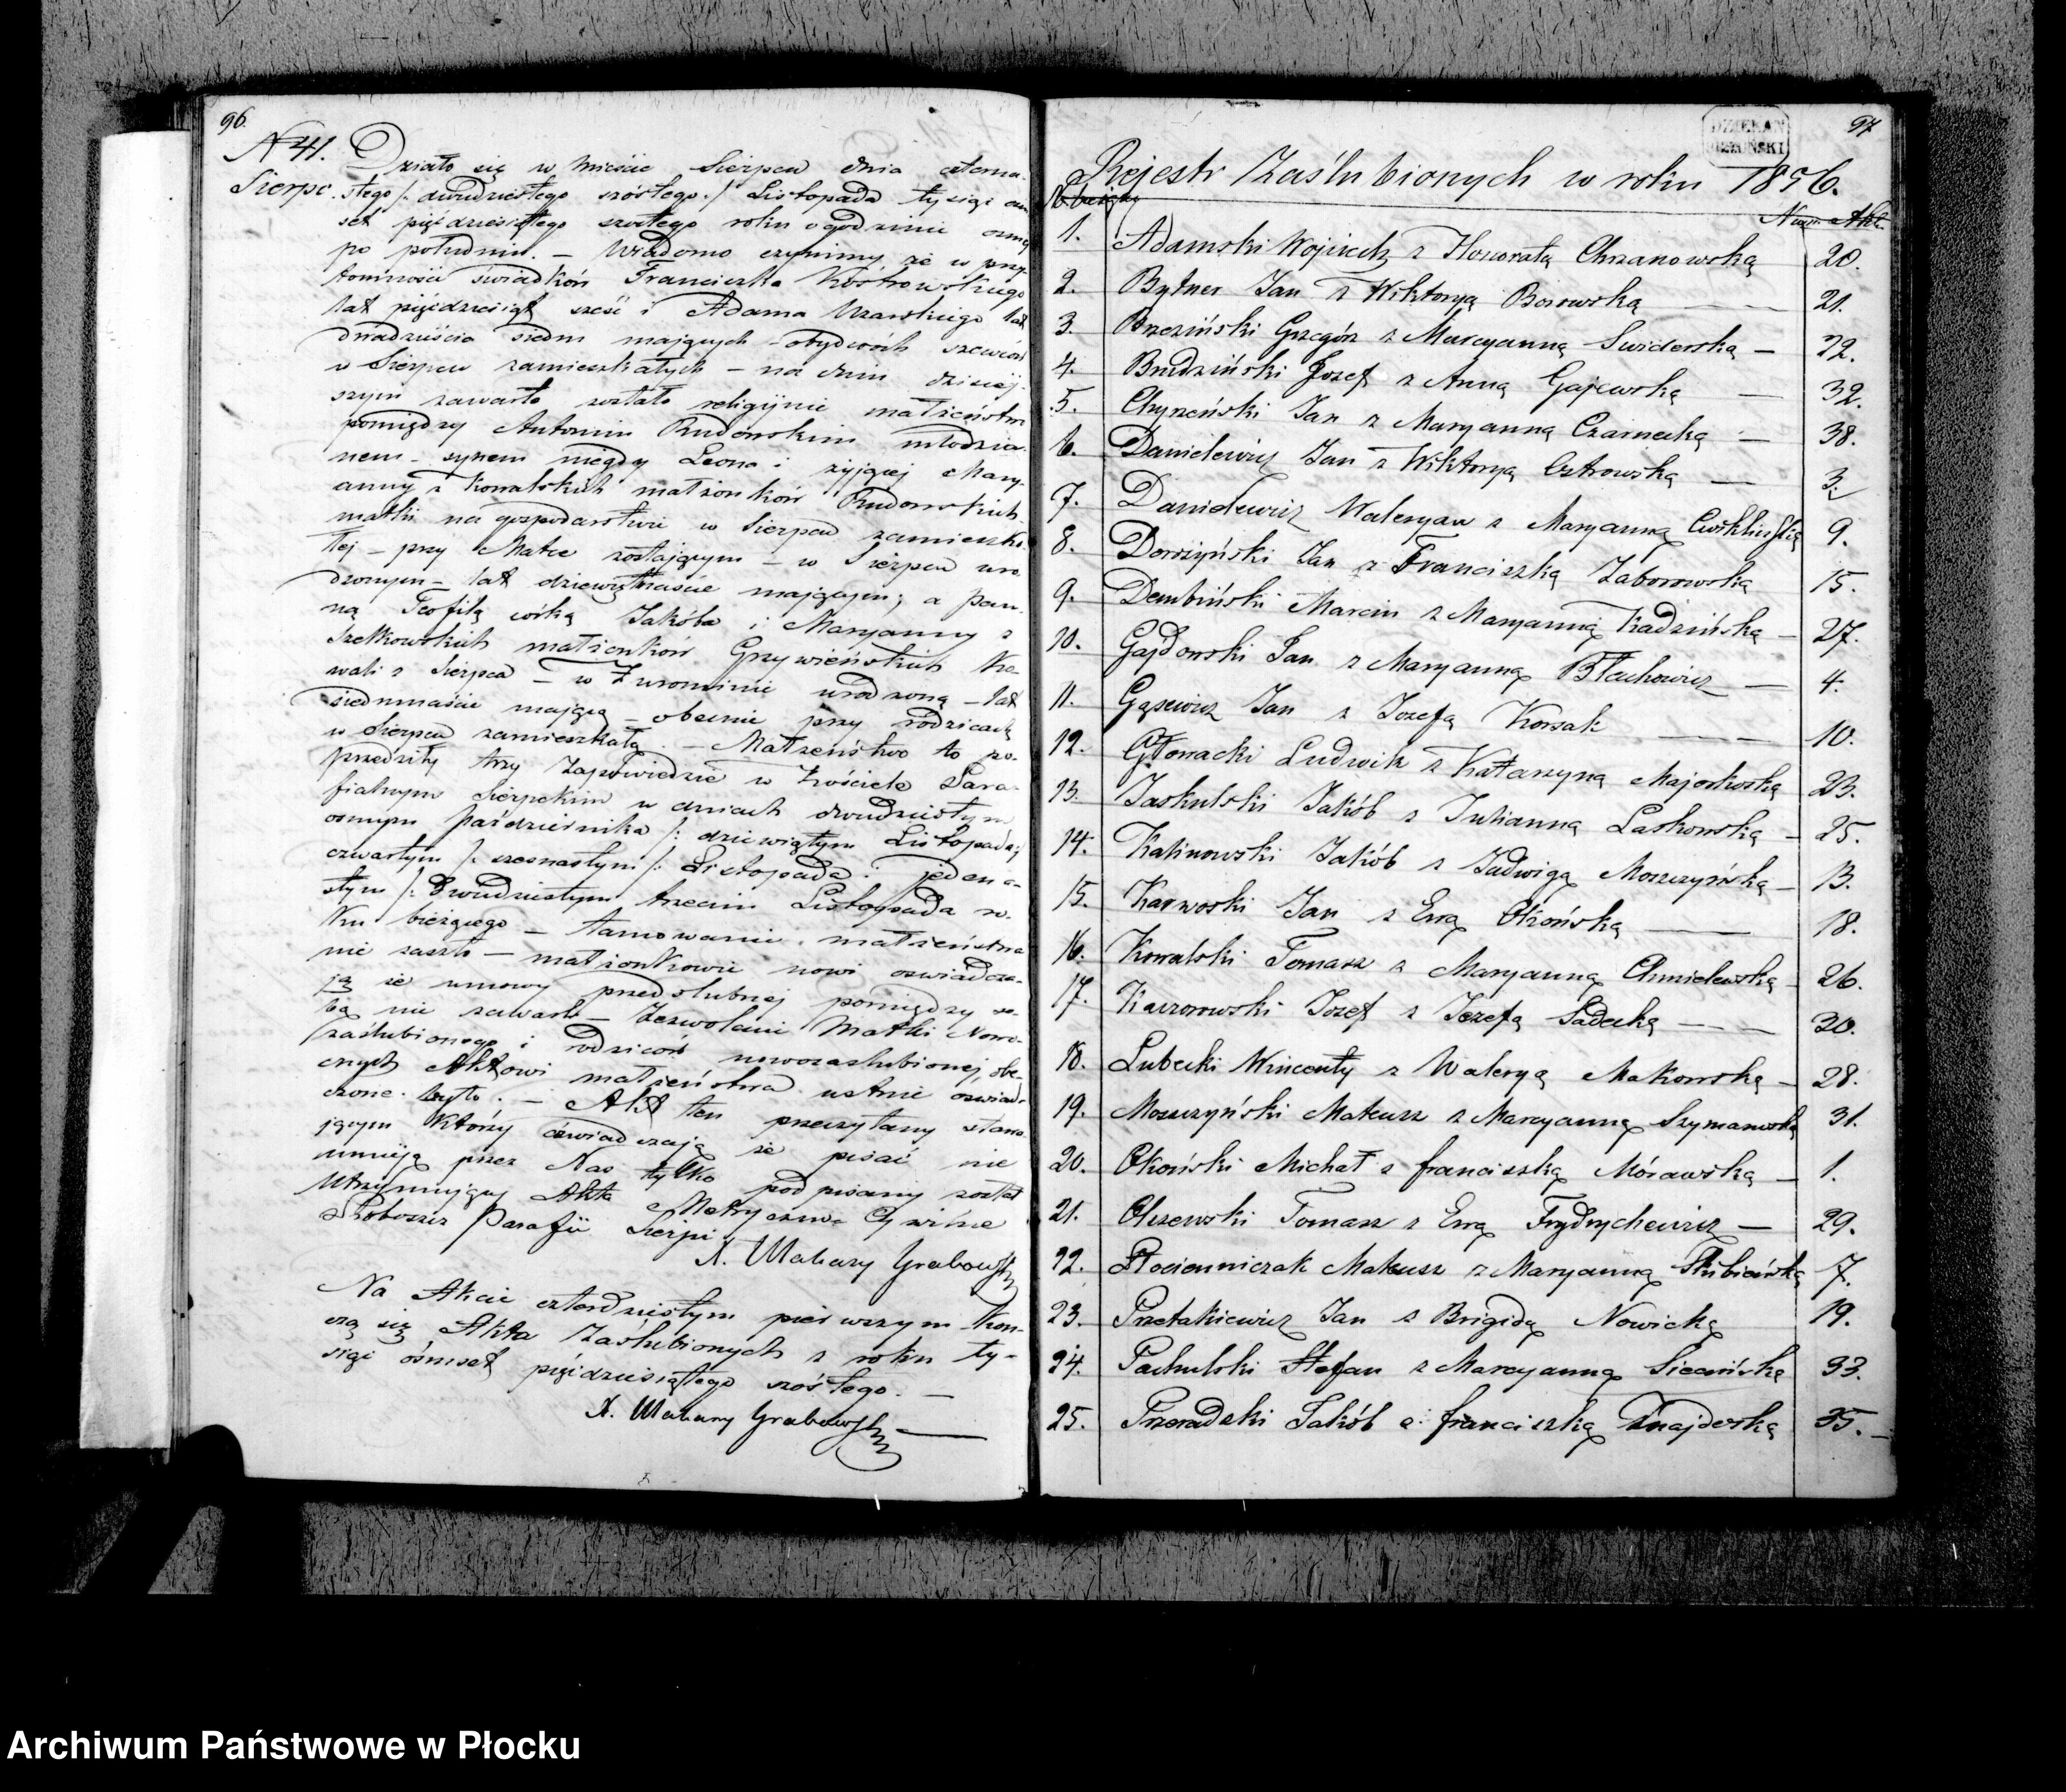 96.
N 41.
Sierpc.
Działo się w mieście Sierpcu dnia czterna-
stego /: dwudziestego szóstego :/ Listopada tysiąc ośm
set pięćdziesiątego szóstego roku o godzinie osmej
po południu. — Wiadomo czynimy, że w przy
tomności świadków Franciszka Kostrowskiego
lat pięćdziesiąt sześć i Adama lat
dwadzieścia siedm mających – obydwóch szewców
w Sierpcu zamieszkałych – na dniu dzisiej-
szym zawarte zostało religijnie małżeństwo
pomiędzy Antonim Rudowskim młodzia-
nem – synem niegdy Leona i żyjącej Mary-
anny z Kowalskich małżonków Rudowskich
matki na gospodarstwie w Sierpcu zamieszka-
łej – przy Matce zostającym – w Sierpcu uro
dzonym – lat dziewiętnaście mającym; a pan-
ną Teofilą córką Jakóba i Maryanny z
małżonków Grzywieńskich Ko-
wali z Sierpca – w Żurominie urodzoną – lat
siedmnaście mającą – obecnie przy rodzicach
w Sierpcu zamieszkałą. – Małżeństwo to po-
przedziły trzy Zapowiedzie w Kościele Para-
fialnym Sierpckim w dniach dwudziestym
osmym Października /: dziewiątym Listopada,
czwartym /: szesnastym /: Listopada i jedena-
stym /: Dwudziestym trzecim Listopada ro-
ku bieżącego – tamowanie małżeństwa
nie zaszło – małżonkowie nowi oswiadcza-
ją że umowy przedślubnej pomiędzy so-
bą nie zawarli – Zezwolenie Matki Nowo-
zaślubionego i rodziców nowozaslubionej, obe-
cnych Aktowi małżeństwa ustnie oswiad-
czone było. – Akt ten przeczytany stawa-
jącym którzy oświadczają że pisać nie
umieją przez Nas tylko podpisany został
Utrzymujący Akta Cywilne
Proboszcz Parafii Sierpc
X. Makary Grabowski
Na Akcie czterdziestym pierwszym koń-
czą się Akta Zaslubionych z roku ty-
siąc ośmset pięćdziesiątego szóstego. —
X. Makary Grabowski
97
DZIEKAN
Rejestr Zaślubionych w roku 1856.
N bieżący Num Akt.
1. Adamski Wojciech z Honoratą Chrzanowską 20.
2. Bytner Jan z Wiktoryą Borowską 21.
3. Brzeziński Grzegórz z Maryanną Swiderską — 22.
4. Budziński Jozef z Anną Gajewską — 32.
5. Chyzeński Jan z Maryanną Czarnecką — 38.
6. Danielewicz Jan z Wiktoryą Ostrowską — 3.
7. Danielewicz Waleryan z Maryanną Cwiklińską 9.
8. Jan z Franciszką Zaborowską 15.
9. Dembiński Marcin z Maryanną Kadzińską — 27.
10. Gajdowski Jan z Maryanną Błachowicz — 4.
11. Gąsewicz Jan z Jozefą Korzak — 10.
12. Głowacki Ludwik z Katarzyną Majewską 23.
13. Jaskulski Jakób z Julianną Laskowską — 25.
14. Kalinowski Jakób z Jadwigą Moszczyńską — 13.
15. Karwoski Jan z Ewą Okońską — 18.
16. Kowalski Tomasz z Maryanną Chmielewską — 26.
17. Kaczorowski Jozef z Jozefą Sadecką — 30.
18. Lubecki Wincenty z Waleryą Makowską — 28.
19. Moszczyński Mateusz z Maryanną Szymanowską 31.
20. Okoński Michał z franciszką Mórawską — 1.
21. Olszewski Tomasz z Ewą Frydrychewicz — 29.
22. Płocienniczak Mateusz z Maryanną 7.
23. Przetakiewicz Jan z Brigidą Nowicką 19.
24. Pachulski Stefan z Maryanną Siecińską 33.
25. Przeradzki Jakób z franciszką Znajderską 35. —
Archiwum Państwowe w Płocku